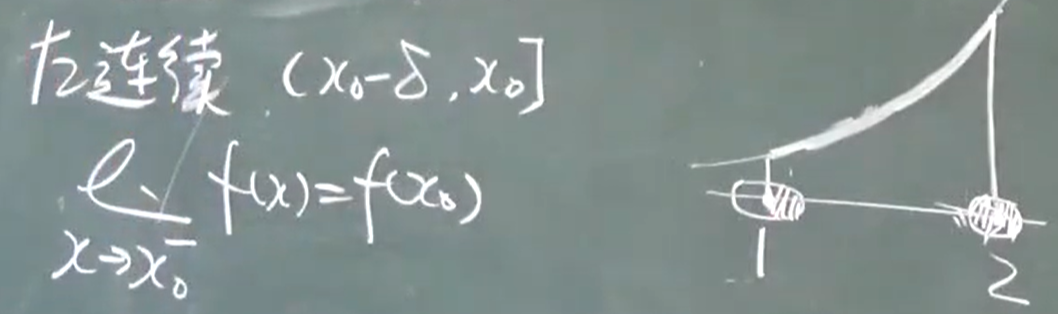 左连续 (x₀-δ, x₀]
lim f(x)=f(x₀)
x→x₀⁻
1
2